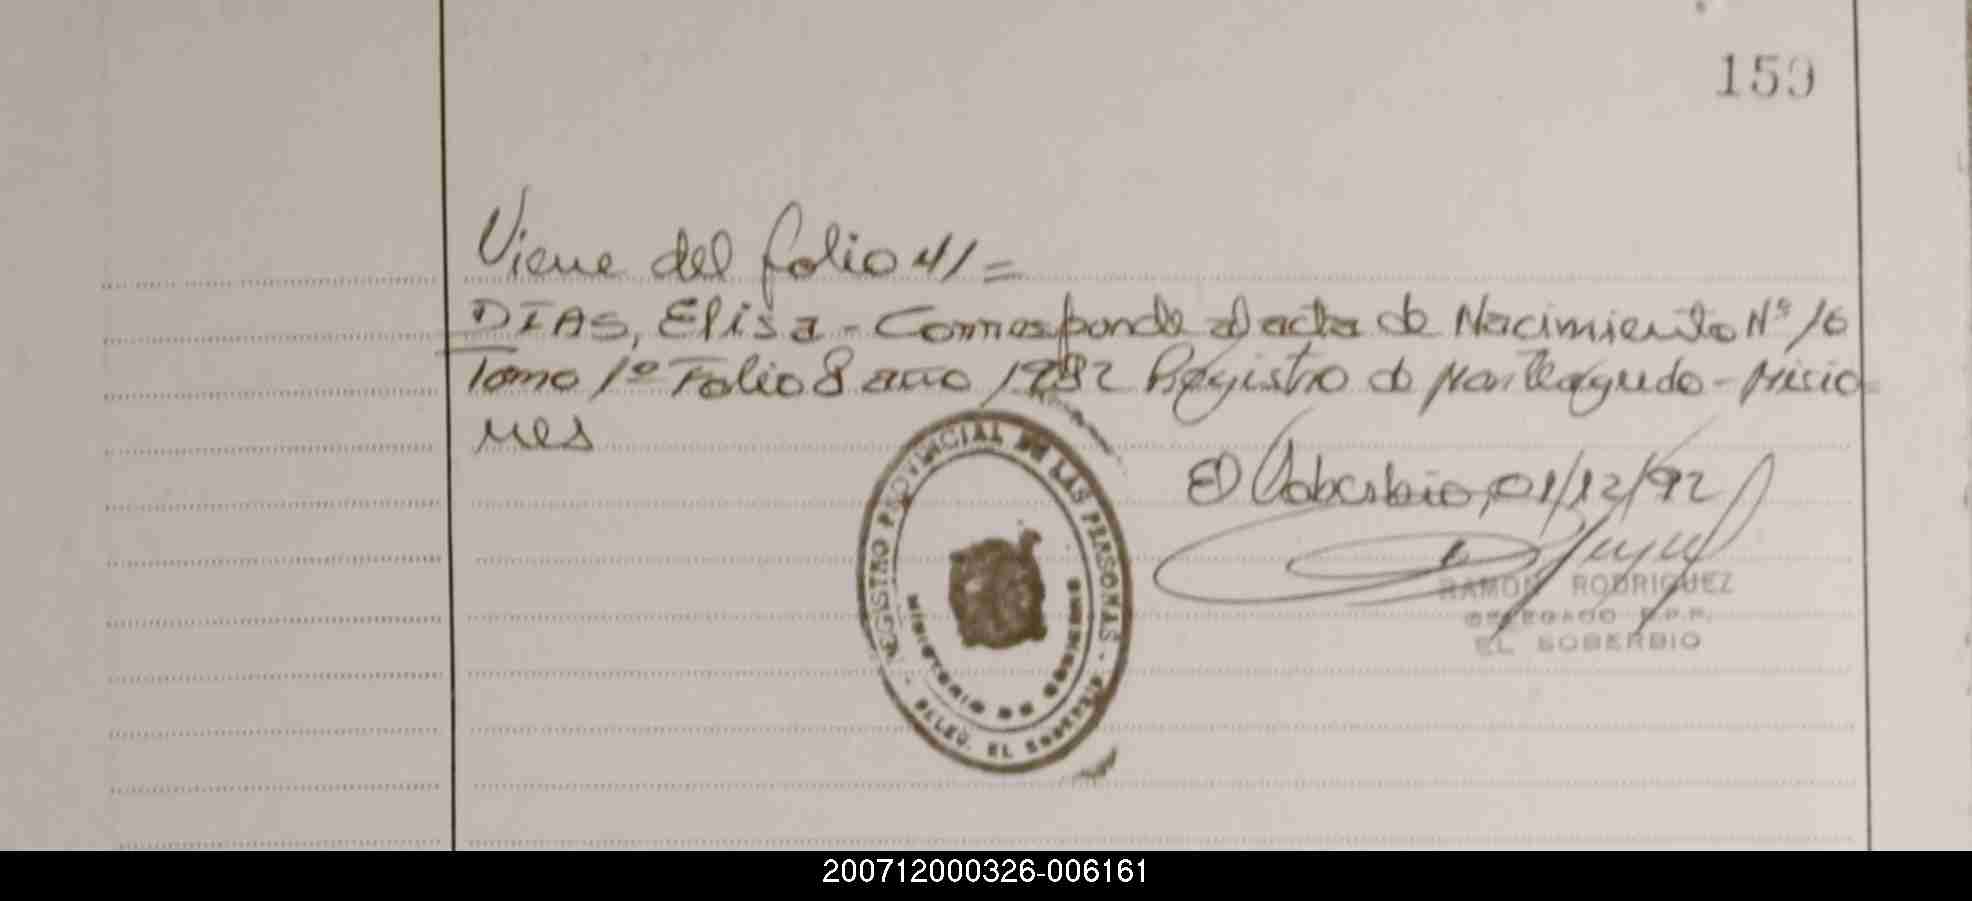 159
Viene del folio 41=
DIAS, Elisa - Corresponde al acta de Nacimiento Nº 16
Tomo 1º Folio 8 año 1982 Registro de Monteagudo - Misio
nes
El Soberbio, 01/12/92
REGISTRO PROVINCIAL DE LAS PERSONAS -
MINISTERIO DE GOBIERNO
- DELEG. EL SOBERBIO
RAMON RODRIGUEZ
DELEGADO R.P.P.
EL SOBERBIO
200712000326-006161